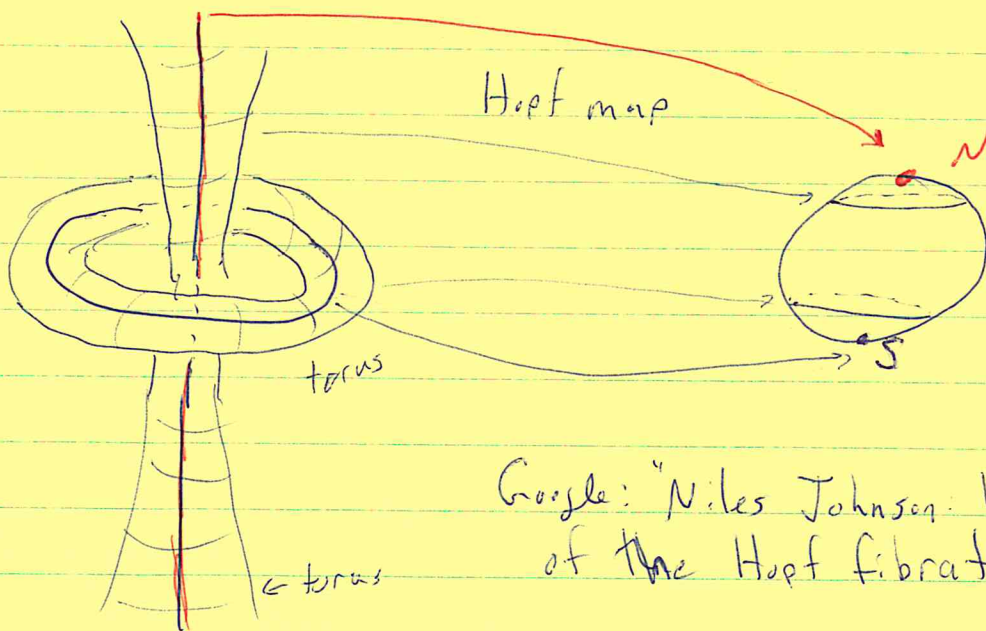 Hopf map
N
S
torus
Google: "Niles Johnson
of the Hopf fibrat
← torus